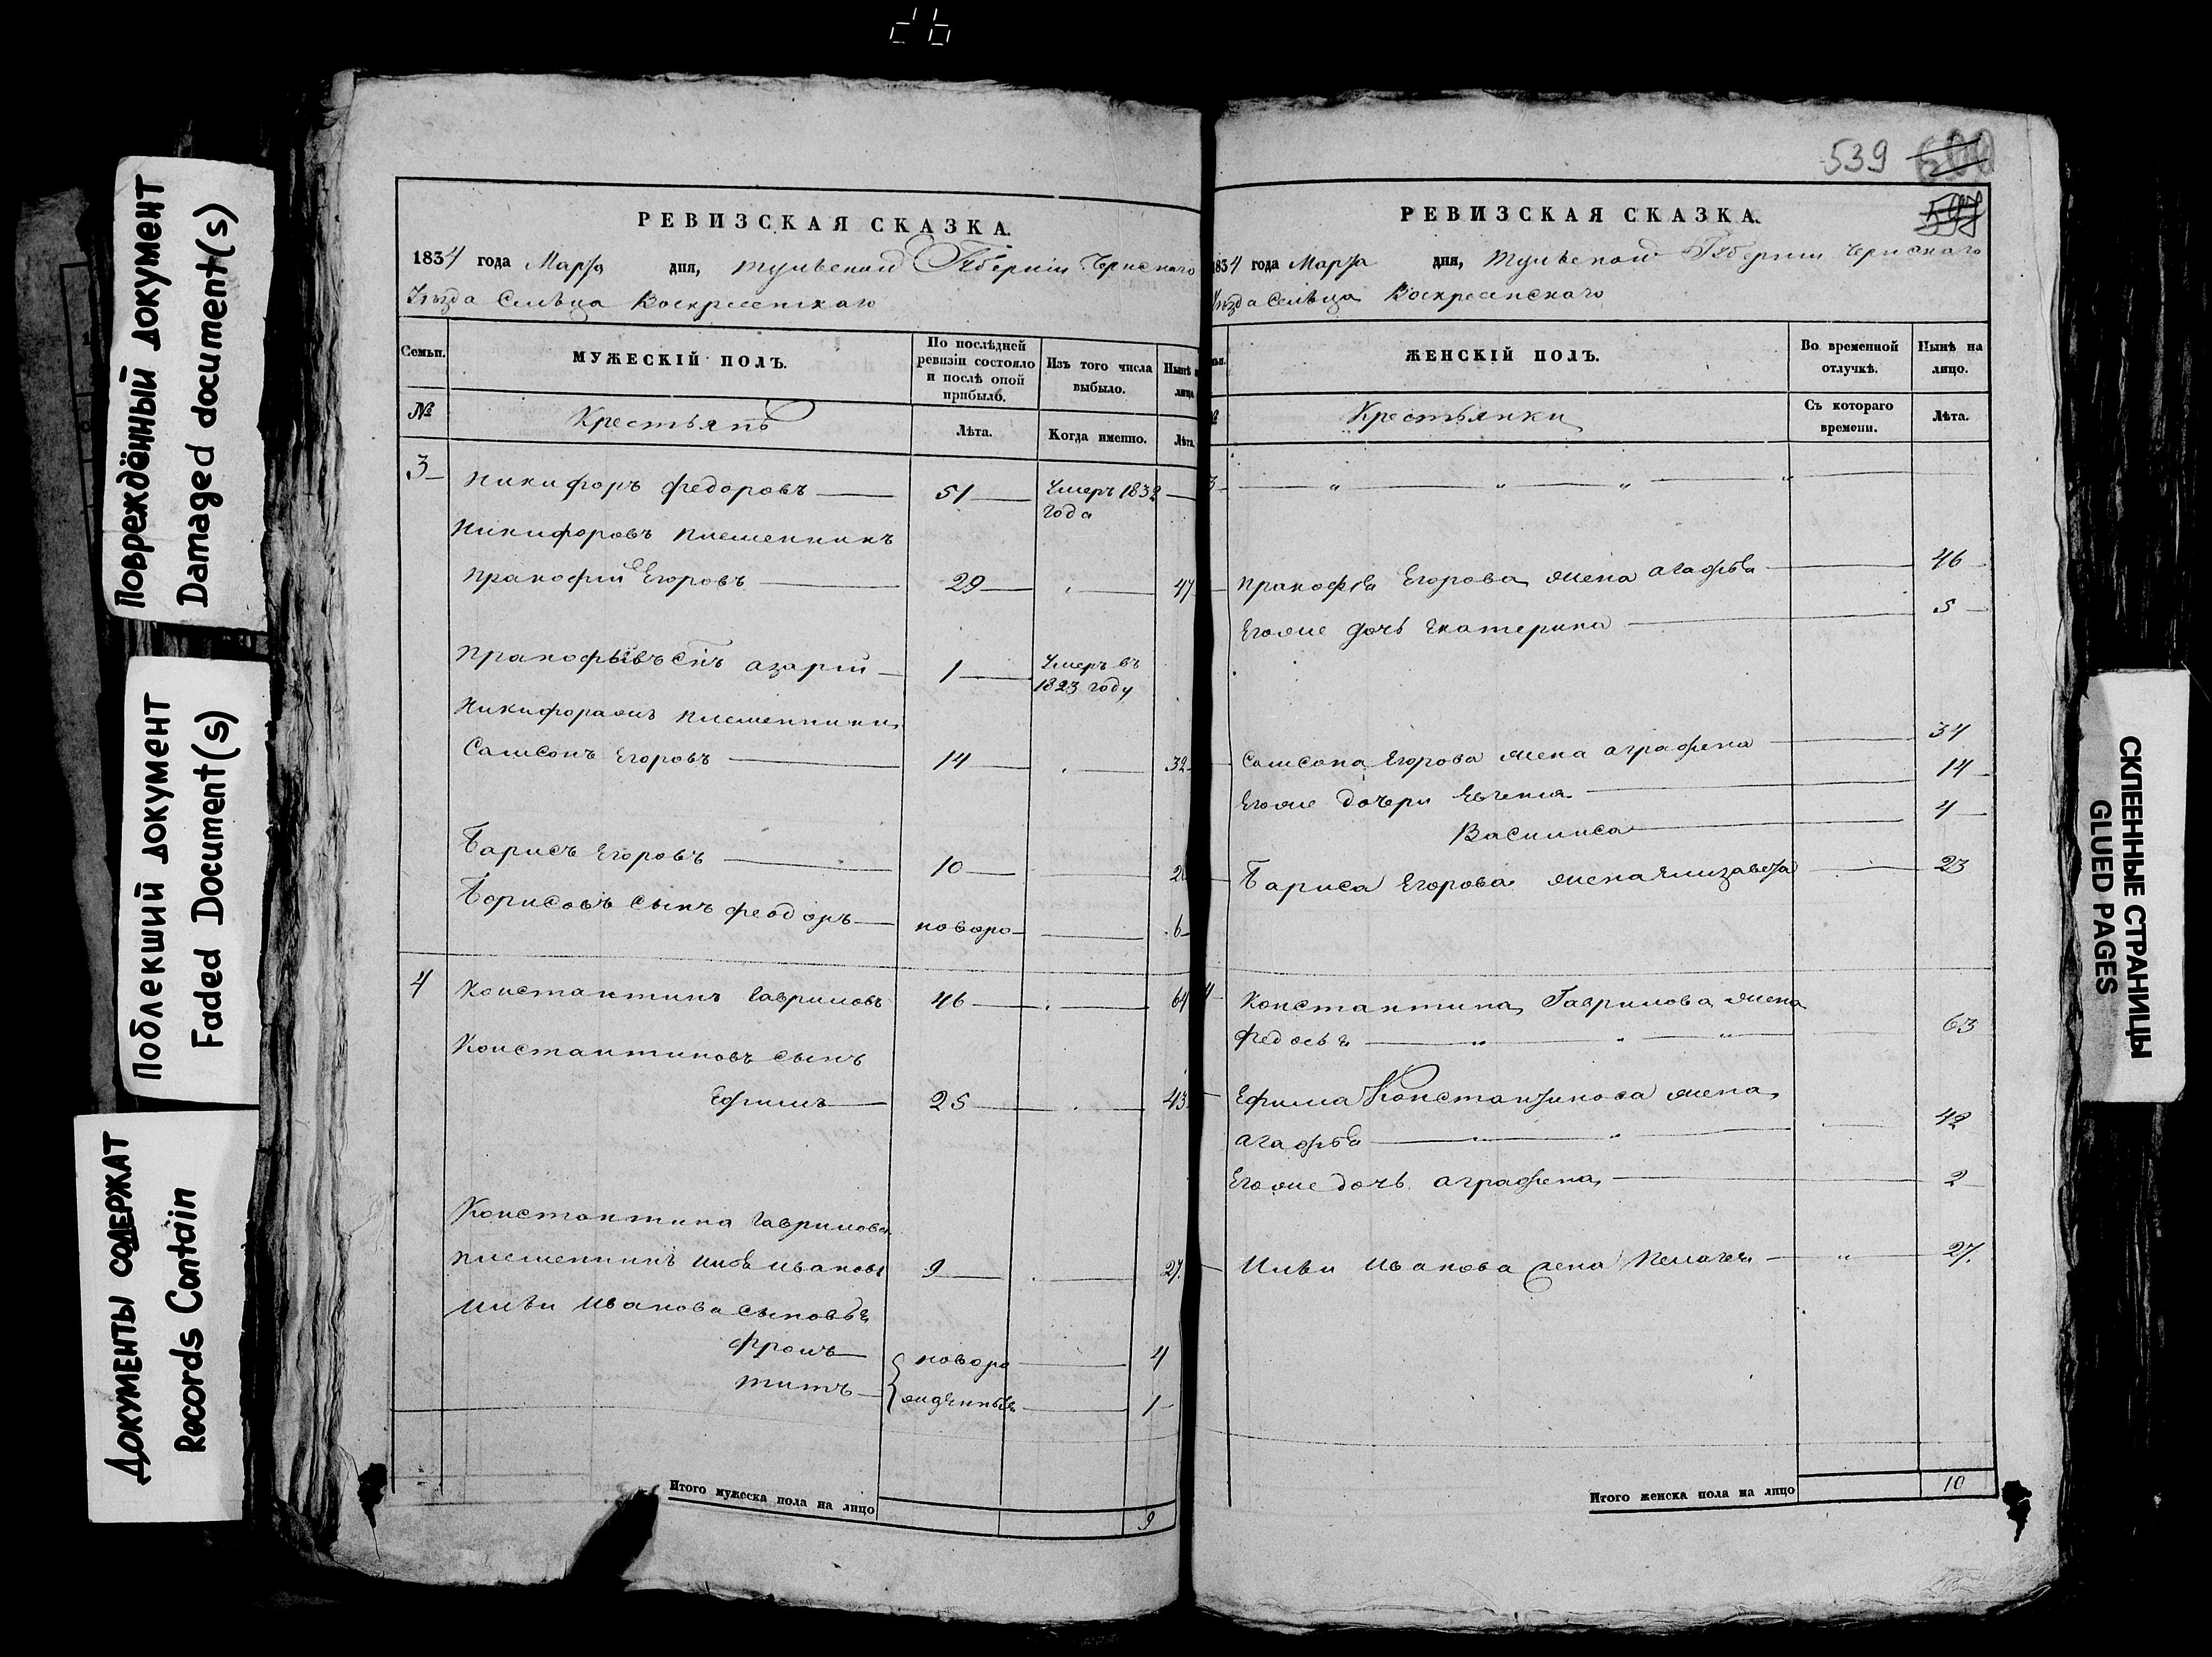 Повреждённый документ
Damaged document(s)
Поблекший документ
Faded Document(s)
Документы содержат
Records Contain
РЕВИЗСКАЯ СКАЗКА.
1834 года Марта дня, Тульской Губерніи Чернскаго
Уѣзда Сельца Воскресенскаго
Семьи. МУЖЕСКІЙ ПОЛЪ. По послѣдней ревизіи состояло и послѣ оной прибыло. Изъ того числа выбыло. Нынѣ на лицо
№ Крестьянъ Лѣта. Когда именно. Лѣта.
3 Никифоръ Федоровъ 51 Умеръ 1832
года
Никифоровъ племенникъ
Пракофій Егоровъ 29 47
Пракофьевъ Снъ Азарій 1 Умеръ въ
1823 году
Никифоравы племенники
Самсонъ Егоровъ 14 32
Барисъ Егоровъ 10 2
Борисовъ сынъ Феодоръ новоро 6
4 Константинъ Гавриловъ 46 64
Константиновъ сынъ
Ефимъ 25 43
Константина Гаврилова
племенникъ Илья Ивановъ 9 27.
Ильи Иванова сыновья
Фролъ новоро 4
Титъ жденныя 1
Итого мужеска пола на лицо 9
539
597
РЕВИЗСКАЯ СКАЗКА.
1834 года Марта дня, Тульской Губерніи Чернскаго
Уѣзда Сельца Воскресенскаго
ЖЕНСКІЙ ПОЛЪ. Во временной отлучкѣ. Нынѣ на лицо.
Крестьянки Съ котораго времени. Лѣта.
3 " " " "
Пракофья Егорова жена Агафья 46
Егоже дочь Екатерина 5
Самсона Егорова жена Аграфена 34
Егоже дочери Евгенія 14
Василиса 4
Бариса Егорова жена Елизавета 23
4 Константина Гаврилова жена
Федосья " " " 63
Ефима Константинова жена
Агафья " " 42
Егоже дочь Аграфена 2
Ильи Иванова жена Пелагея " 27.
Итого женска пола на лицо 10
СКЛЕЕННЫЕ СТРАНИЦЫ
GLUED PAGES